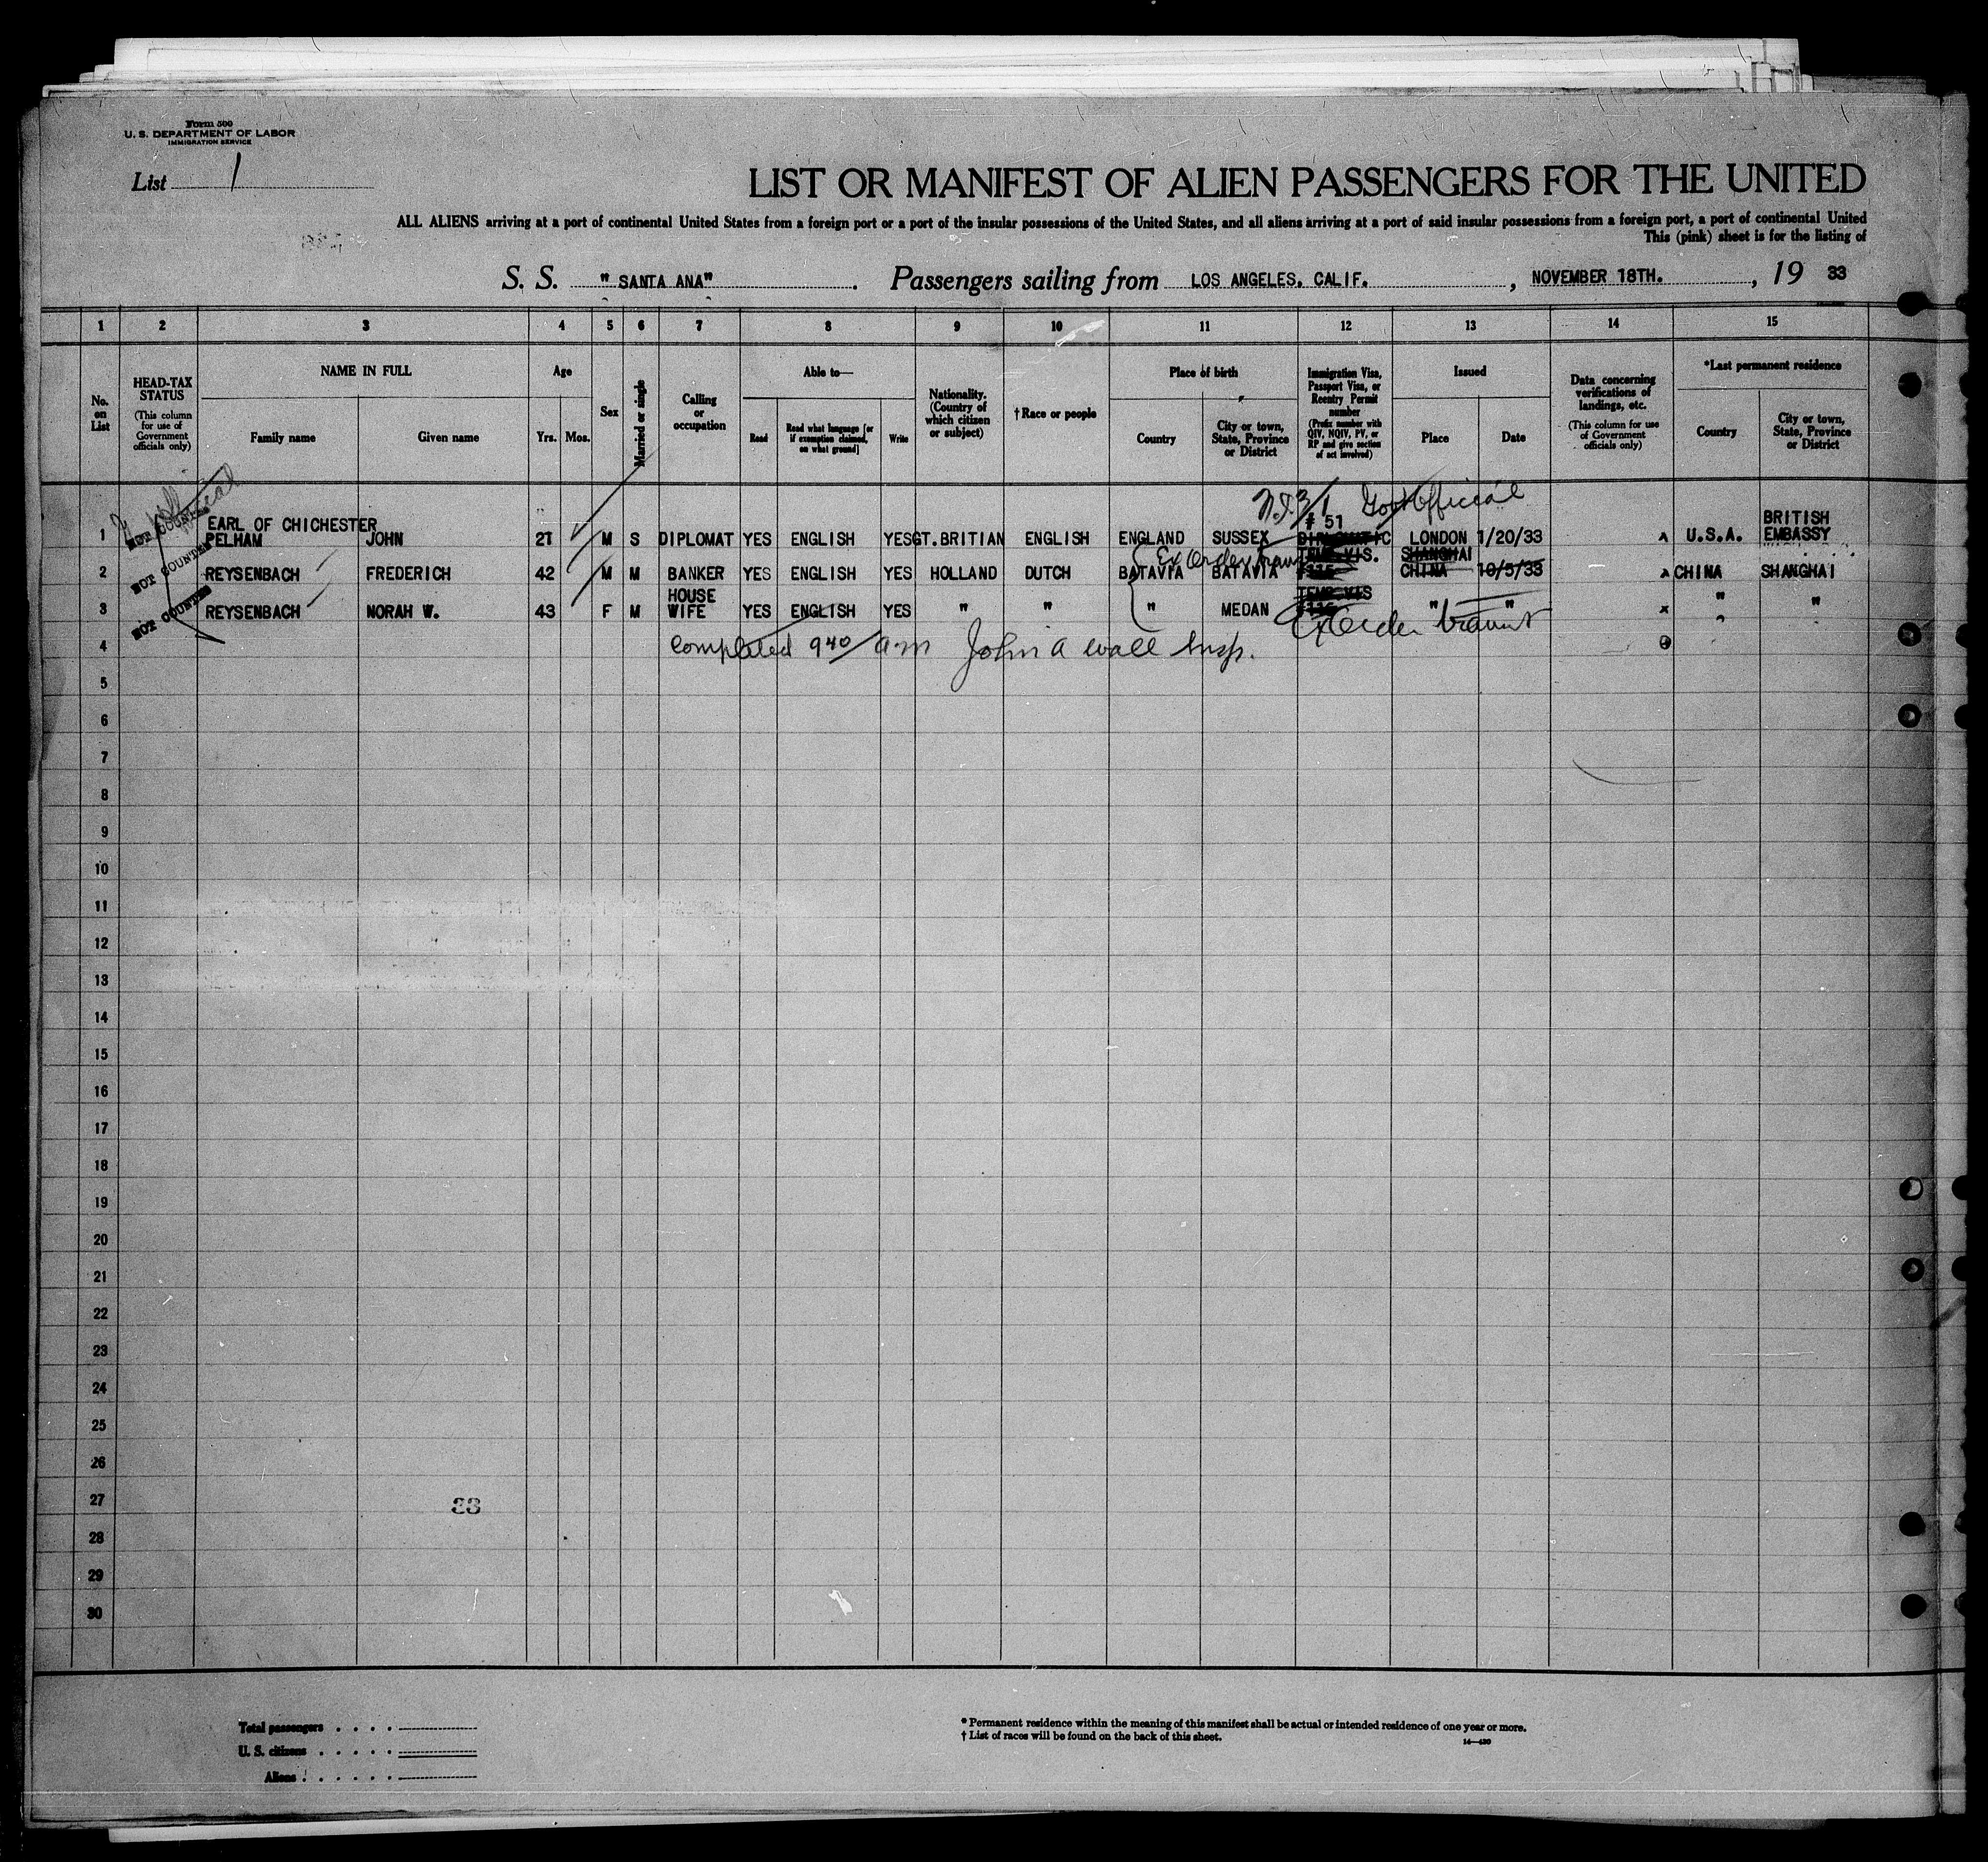 Form 500
U. S. DEPARTMENT OF LABOR
IMMIGRATION SERVICE
List 1
LIST OR MANIFEST OF ALIEN PASSENGERS FOR THE UNITED
ALL ALIENS arriving at a port of continental United States from a foreign port or a port of the insular possessions of the United States, and all aliens arriving at a port of said insular possessions from a foreign port, a port of continental United
This (pink) sheet is for the listing of
S. S. "SANTA ANA". Passengers sailing from LOS ANGELES. CALIF., NOVEMBER 18TH., 19 33
1 2 3 4 5 6 7 8 9 10 11 12 13 14 15
No. on List
HEAD-TAX STATUS
(This column for use of Government officials only)
NAME IN FULL
Family name Given name
Age
Yrs. Mos.
Sex
Married or single
Calling or occupation
Able to—
Read
Read what language [or if exemption claimed, on what ground]
Write
Nationality. (Country of which citizen or subject)
†Race or people
Place of birth
Country
City or town, State, Province or District
Immigration Visa, Passport Visa, or Reentry Permit number
(Prefix number with QIV, NQIV, PV, or RP and give section of act involved)
Issued
Place Date
Data concerning verifications of landings, etc.
(This column for use of Government officials only)
*Last permanent residence
Country
City or town, State, Province or District
3/1 Govt Official
# 51
EARL OF CHICHESTER BRITISH
1 NOT COUNTED PELHAM JOHN 21 M S DIPLOMAT YES ENGLISH YES GT.BRITIAN ENGLISH ENGLAND SUSSEX DIPLOMATIC LONDON 1/20/33 U.S.A. EMBASSY
Ex Order TEMP.VIS. SHANGHAI
2 NOT COUNTED REYSENBACH FREDERICH 42 M M BANKER YES ENGLISH YES HOLLAND DUTCH BATAVIA BATAVIA CHINA 10/5/33 x CHINA SHANGHAI
HOUSE TEMP.VIS
3 NOT COUNTED REYSENBACH NORAH W. 43 F M WIFE YES ENGLISH YES " " " MEDAN " " x " "
Ex Order transit
4 Completed 940/am John A Wall Insp.
5
6
7
8
9
10
11
12
13
14
15
16
17
18
19
20
21
22
23
24
25
26
27
33
28
29
30
Total passengers . . . .
U. S. citizens . . . . .
Aliens . . . . . .
* Permanent residence within the meaning of this manifest shall be actual or intended residence of one year or more.
† List of races will be found on the back of this sheet.
14—430